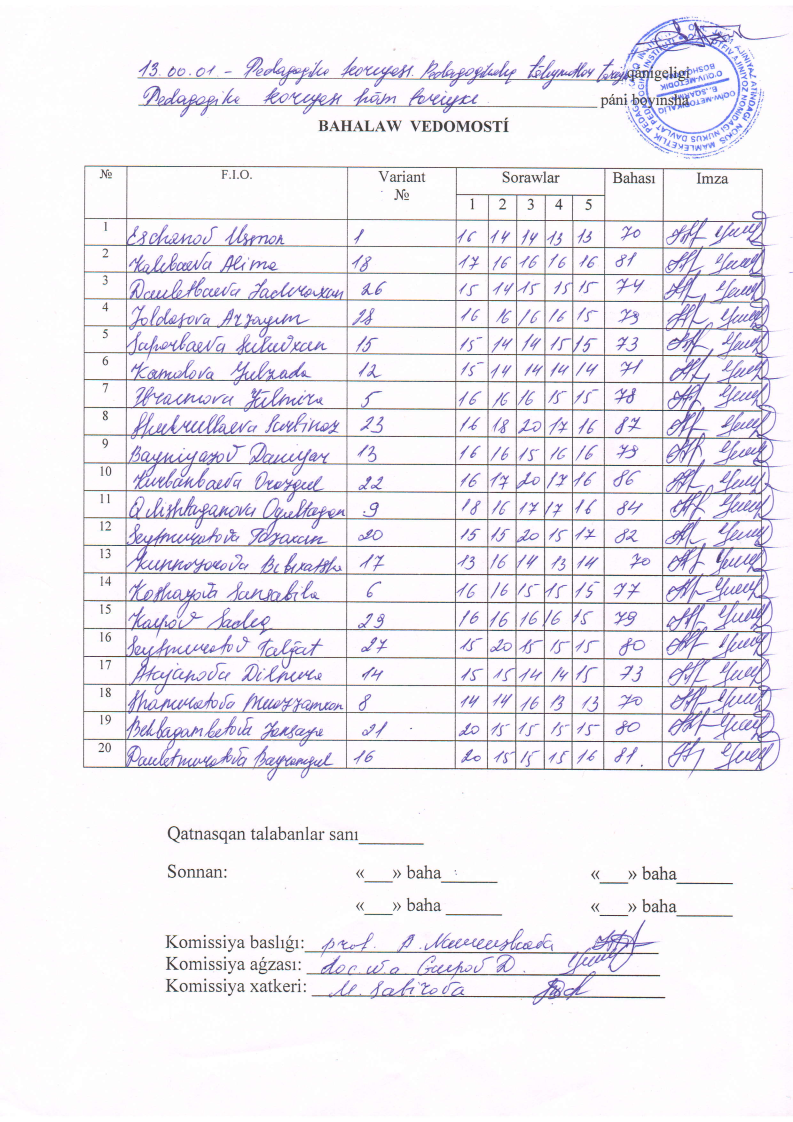 13.00.01 – Pedagogika teoriyası. Pedagogikalıq qánigeligi
Pedagogika teoriyası hám tariyxı páni boyınsha
BAHALAW VEDOMOSTÍ
№ F.I.O. Variant № Sorawlar Bahası Imza
1 2 3 4 5
1 Eschanov Usmon 1 16 14 14 13 13 70
2 Kalibaeva Alima 18 17 16 16 16 16 81
3 Dauletbaeva 26 15 14 15 15 15 74
4 Joldasova 28 16 16 16 16 15 79
5 Saparbaeva 15 15 14 14 15 15 73
6 Kamalova Gulzada 12 15 14 14 14 14 71
7 Ibraimova Gulmira 5 16 16 16 15 15 78
8 Shukrullaeva Sarbinaz 23 16 18 20 17 16 87
9 Bayniyazov Daniyar 13 16 16 15 16 16 79
10 Kurbanbaeva Orazgul 22 16 17 20 17 16 86
11 Qilishtaganova Ogultagan 9 18 16 17 17 16 84
12 Seytmuratova 20 15 15 20 15 17 82
13 17 13 16 14 13 14 70
14 Sarsabila 6 16 16 15 15 15 77
15 Kaipov Sadıq 29 16 16 16 16 15 79
16 Seytmuratov Talǵat 27 15 20 15 15 15 80
17 Atajanova Dilnura 14 15 15 14 14 15 73
18 Shamuratova Muazzamxan 8 14 14 16 13 13 70
19 Bekbagambetova 21 20 15 15 15 15 80
20 Dauletmuratova Bayramgul 16 20 15 15 15 16 81.
Qatnasqan talabanlar sanı_______
Sonnan: «___» baha______ «___» baha______
«___» baha ______ «___» baha______
Komissiya baslıǵı: prof. A.
Komissiya aǵzası: doc. w.a. D.
Komissiya xatkeri: M. Sabirova